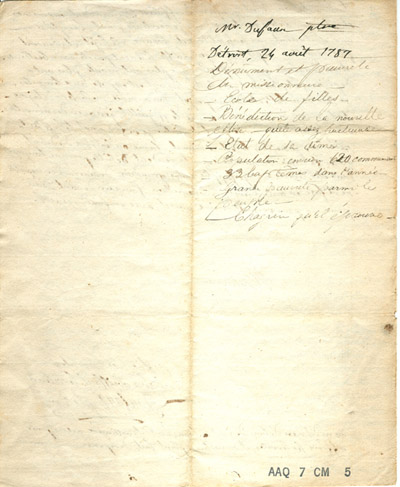 Mr. Dufaux ptre
Détroit, 24 août 1787
Dénument et pauvreté
de missionnaire
— Ecoles de filles —
— Bénédiction de la nouvelle
église — quête assez fructueuse
— Etat de sa
— Population environ 620 communiants
33 baptêmes dans l'année
Grande pauvreté parmi le
peuple —
— Chagrin qu'il éprouve —
AAQ 7 CM 5